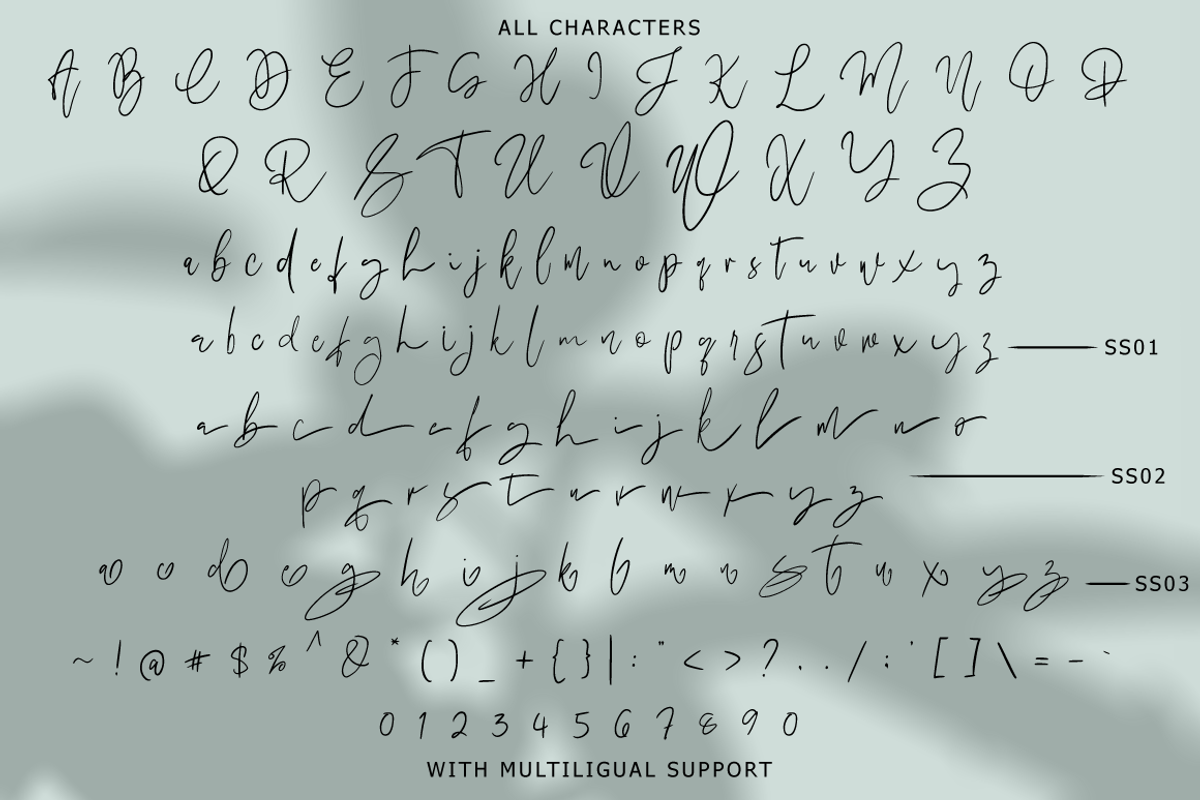 ALL CHARACTERS
A B C D E F G H I J K L M N O P
Q R S T U V W X Y Z
a b c d e f g h i j k l m n o p q r s t u v w x y z
a b c d e f g h i j k l m n o p q r s t u v w x y z SS01
a b c d e f g h i j k l m n o
p q r s t u v w x y z SS02
a c d e g h i j k l m n s t u x y z SS03
~ ! @ # $ % ^ & * ( ) _ + { } | : " < > ? . . / ; ' [ ] \ = - `
0 1 2 3 4 5 6 7 8 9 0
WITH MULTILIGUAL SUPPORT